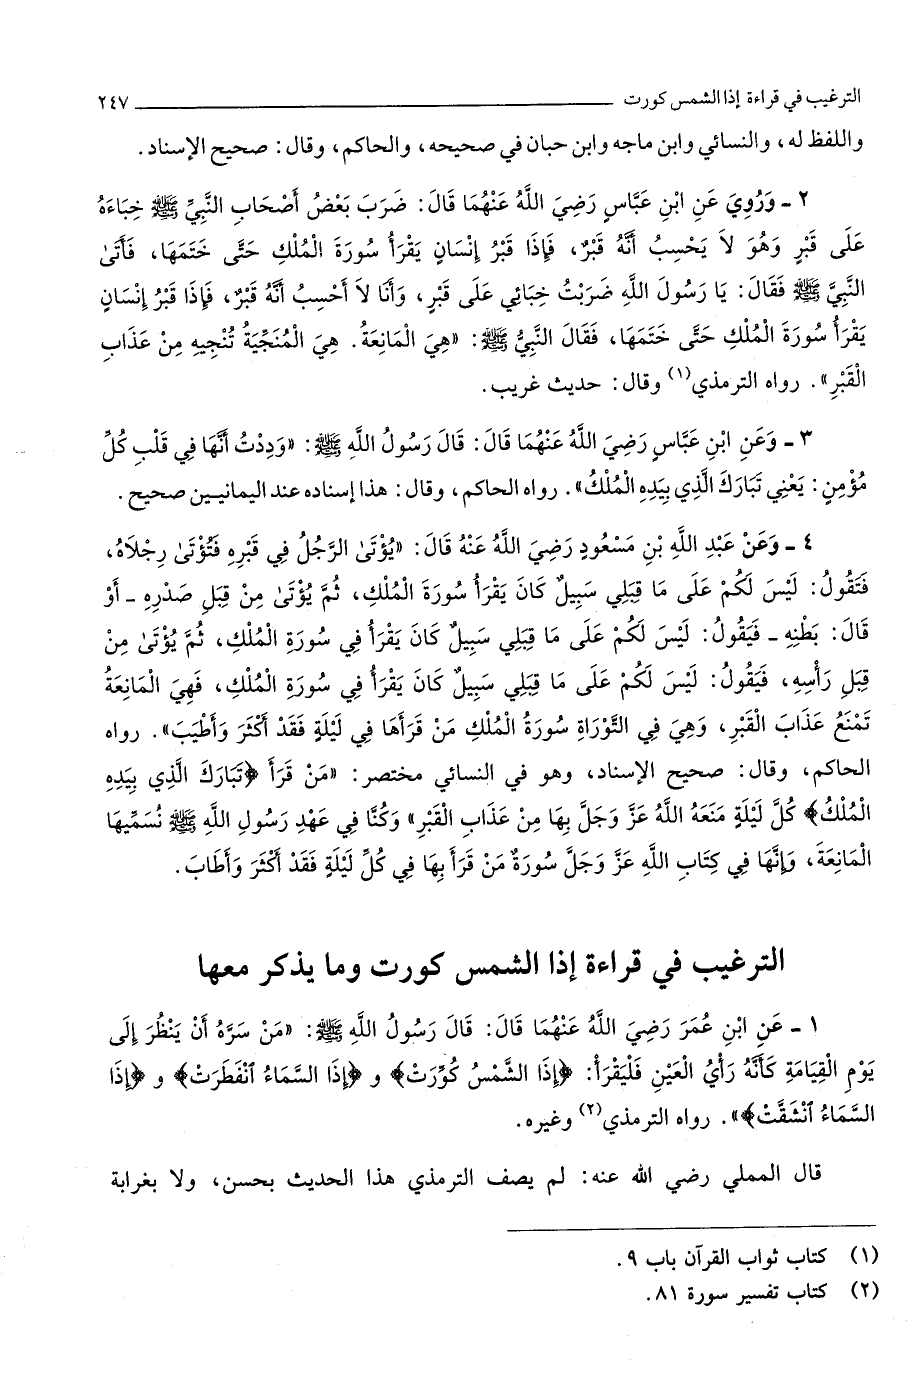 الترغيب في قراءة إذا الشمس كورت ٢٤٧
واللفظ له، والنسائي وابن ماجه وابن حبان في صحيحه، والحاكم، وقال: صحيح الإسناد.
٢ ـ وَرُوِيَ عَنِ ابْنِ عَبَّاسٍ رَضِيَ اللَّهُ عَنْهُمَا قَالَ: ضَرَبَ بَعْضُ أَصْحَابِ النَّبِيِّ ﷺ خِبَاءَهُ
عَلَى قَبْرٍ وَهُوَ لاَ يَحْسِبُ أَنَّهُ قَبْرٌ، فَإِذَا قَبْرُ إِنْسَانٍ يَقْرَأُ سُورَةَ الْمُلْكِ حَتَّى خَتَمَهَا، فَأَتَىٰ
النَّبِيَّ ﷺ فَقَالَ: يَا رَسُولَ اللَّهِ ضَرَبْتُ خِبَائِي عَلَى قَبْرٍ، وَأَنَا لاَ أَحْسِبُ أَنَّهُ قَبْرٌ، فَإِذَا قَبْرُ إِنْسَانٍ
يَقْرَأُ سُورَةَ الْمُلْكِ حَتَّى خَتَمَهَا، فَقَالَ النَّبِيُّ ﷺ: «هِيَ الْمَانِعَةُ. هِيَ الْمُنَجِّيَةُ تُنْجِيهِ مِنْ عَذَابِ
الْقَبْرِ». رواه الترمذي(١) وقال: حديث غريب.
٣ ـ وَعَنِ ابْنِ عَبَّاسٍ رَضِيَ اللَّهُ عَنْهُمَا قَالَ: قَالَ رَسُولُ اللَّهِ ﷺ: «وَدِدْتُ أَنَّهَا فِي قَلْبِ كُلِّ
مُؤْمِنٍ: يَعْنِي تَبَارَكَ الَّذِي بِيَدِهِ الْمُلْكُ». رواه الحاكم، وقال: هذا إسناده عند اليمانيين صحيح.
٤ ـ وَعَنْ عَبْدِ اللَّهِ بْنِ مَسْعُودٍ رَضِيَ اللَّهُ عَنْهُ قَالَ: «يُؤْتَىٰ الرَّجُلُ فِي قَبْرِهِ فَتُؤْتَىٰ رِجْلاَهُ،
فَتَقُولُ: لَيْسَ لَكُمْ عَلَى مَا قِبَلِي سَبِيلٌ كَانَ يَقْرَأُ سُورَةَ الْمُلْكِ، ثُمَّ يُؤْتَىٰ مِنْ قِبَلِ صَدْرِهِ ـ أَوْ
قَالَ: بَطْنِهِ ـ فَيَقُولُ: لَيْسَ لَكُمْ عَلَى مَا قِبَلِي سَبِيلٌ كَانَ يَقْرَأُ فِي سُورَةِ الْمُلْكِ، ثُمَّ يُؤْتَىٰ مِنْ
قِبَلِ رَأْسِهِ، فَيَقُولُ: لَيْسَ لَكُمْ عَلَى مَا قِبَلِي سَبِيلٌ كَانَ يَقْرَأُ فِي سُورَةِ الْمُلْكِ، فَهِيَ الْمَانِعَةُ
تَمْنَعُ عَذَابَ الْقَبْرِ، وَهِيَ فِي التَّوْرَاةِ سُورَةُ الْمُلْكِ مَنْ قَرَأَهَا فِي لَيْلَةٍ فَقَدْ أَكْثَرَ وَأَطْيَبَ». رواه
الحاكم، وقال: صحيح الإسناد، وهو في النسائي مختصر: «مَنْ قَرَأَ ﴿تَبَارَكَ الَّذِي بِيَدِهِ
الْمُلْكُ﴾ كُلَّ لَيْلَةٍ مَنَعَهُ اللَّهُ عَزَّ وَجَلَّ بِهَا مِنْ عَذَابِ الْقَبْرِ» وَكُنَّا فِي عَهْدِ رَسُولِ اللَّهِ ﷺ نُسَمِّيهَا
الْمَانِعَةَ، وَإِنَّهَا فِي كِتَابِ اللَّهِ عَزَّ وَجَلَّ سُورَةٌ مَنْ قَرَأَ بِهَا فِي كُلِّ لَيْلَةٍ فَقَدْ أَكْثَرَ وَأَطَابَ.
الترغيب في قراءة إذا الشمس كورت وما يذكر معها
١ ـ عَنِ ابْنِ عُمَرَ رَضِيَ اللَّهُ عَنْهُمَا قَالَ: قَالَ رَسُولُ اللَّهِ ﷺ: «مَنْ سَرَّهُ أَنْ يَنْظُرَ إِلَى
يَوْمِ الْقِيَامَةِ كَأَنَّهُ رَأْيُ الْعَيْنِ فَلْيَقْرَأْ: ﴿إِذَا الشَّمْسُ كُوِّرَتْ﴾ و ﴿إِذَا السَّمَاءُ ٱنْفَطَرَتْ﴾ و ﴿إِذَا
السَّمَاءُ ٱنْشَقَّتْ﴾». رواه الترمذي(٢) وغيره.
قال المملي رضي الله عنه: لم يصف الترمذي هذا الحديث بحسن، ولا بغرابة
(١) كتاب ثواب القرآن باب ٩.
(٢) كتاب تفسير سورة ٨١.